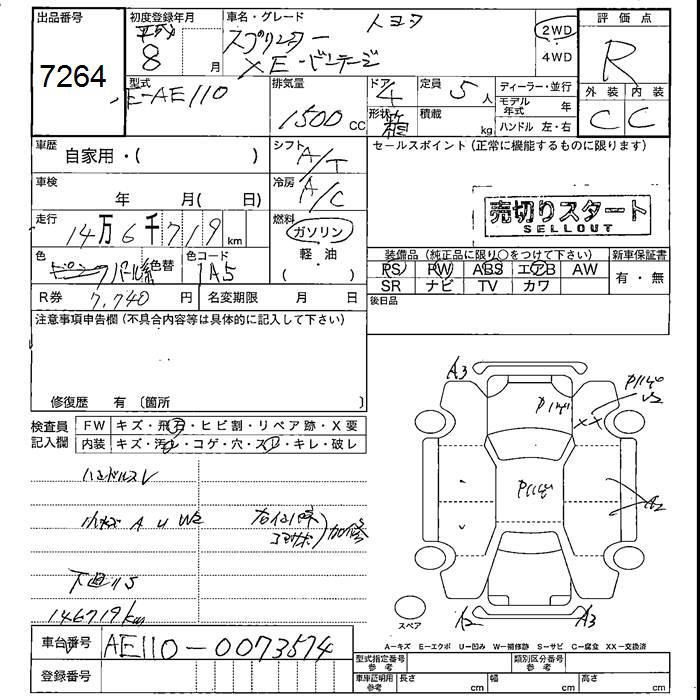 出品番号
7264
初度登録年月
平成
8 月
車名・グレード
トヨタ
スプリンター
XE・バンテージ
2WD
4WD
評価点
R
外装 内装
C C
型式
E-AE110
排気量
1500 CC
ドア
4
形状
箱
定員
5 人
積載
kg
ディーラー・並行
モデル年式 年
ハンドル 左・右
車歴
自家用・( )
シフト
A/T
セールスポイント(正常に機能するものに限ります)
車検
年 月( 日)
冷房
A/C
売切りスタート
SELLOUT
走行
14万6千719km
燃料
ガソリン
軽・油
色
パール
色替
色コード
1A5
装備品(純正品に限り○をつけて下さい)
新車保証書
PS PW ABS エアB AW
SR ナビ TV カワ
有・無
R券 7,740 円
名変期限 月 日
後日品
注意事項申告欄(不具合内容等は具体的に記入して下さい)
修復歴 有 (箇所 )
検査員
記入欄
FW キズ・飛石・ヒビ割・リペア跡・X要
内装 キズ・汚レ・コゲ・穴・スレ・キレ・破レ
ハンドルスレ
小キズ A U W2
右インパネ
コアサポ
加修
下廻りS
146719km
A3
P
P
XX
P
A2
A2
A3
スペア
A-キズ E-エクボ U-凹み W-補修跡 S-サビ C-腐食 XX-交換済
車台番号
AE110-0073574
登録番号
型式指定番号
参考
類別区分番号
参考
車庫証明用
参考
長さ cm
幅 cm
高さ cm